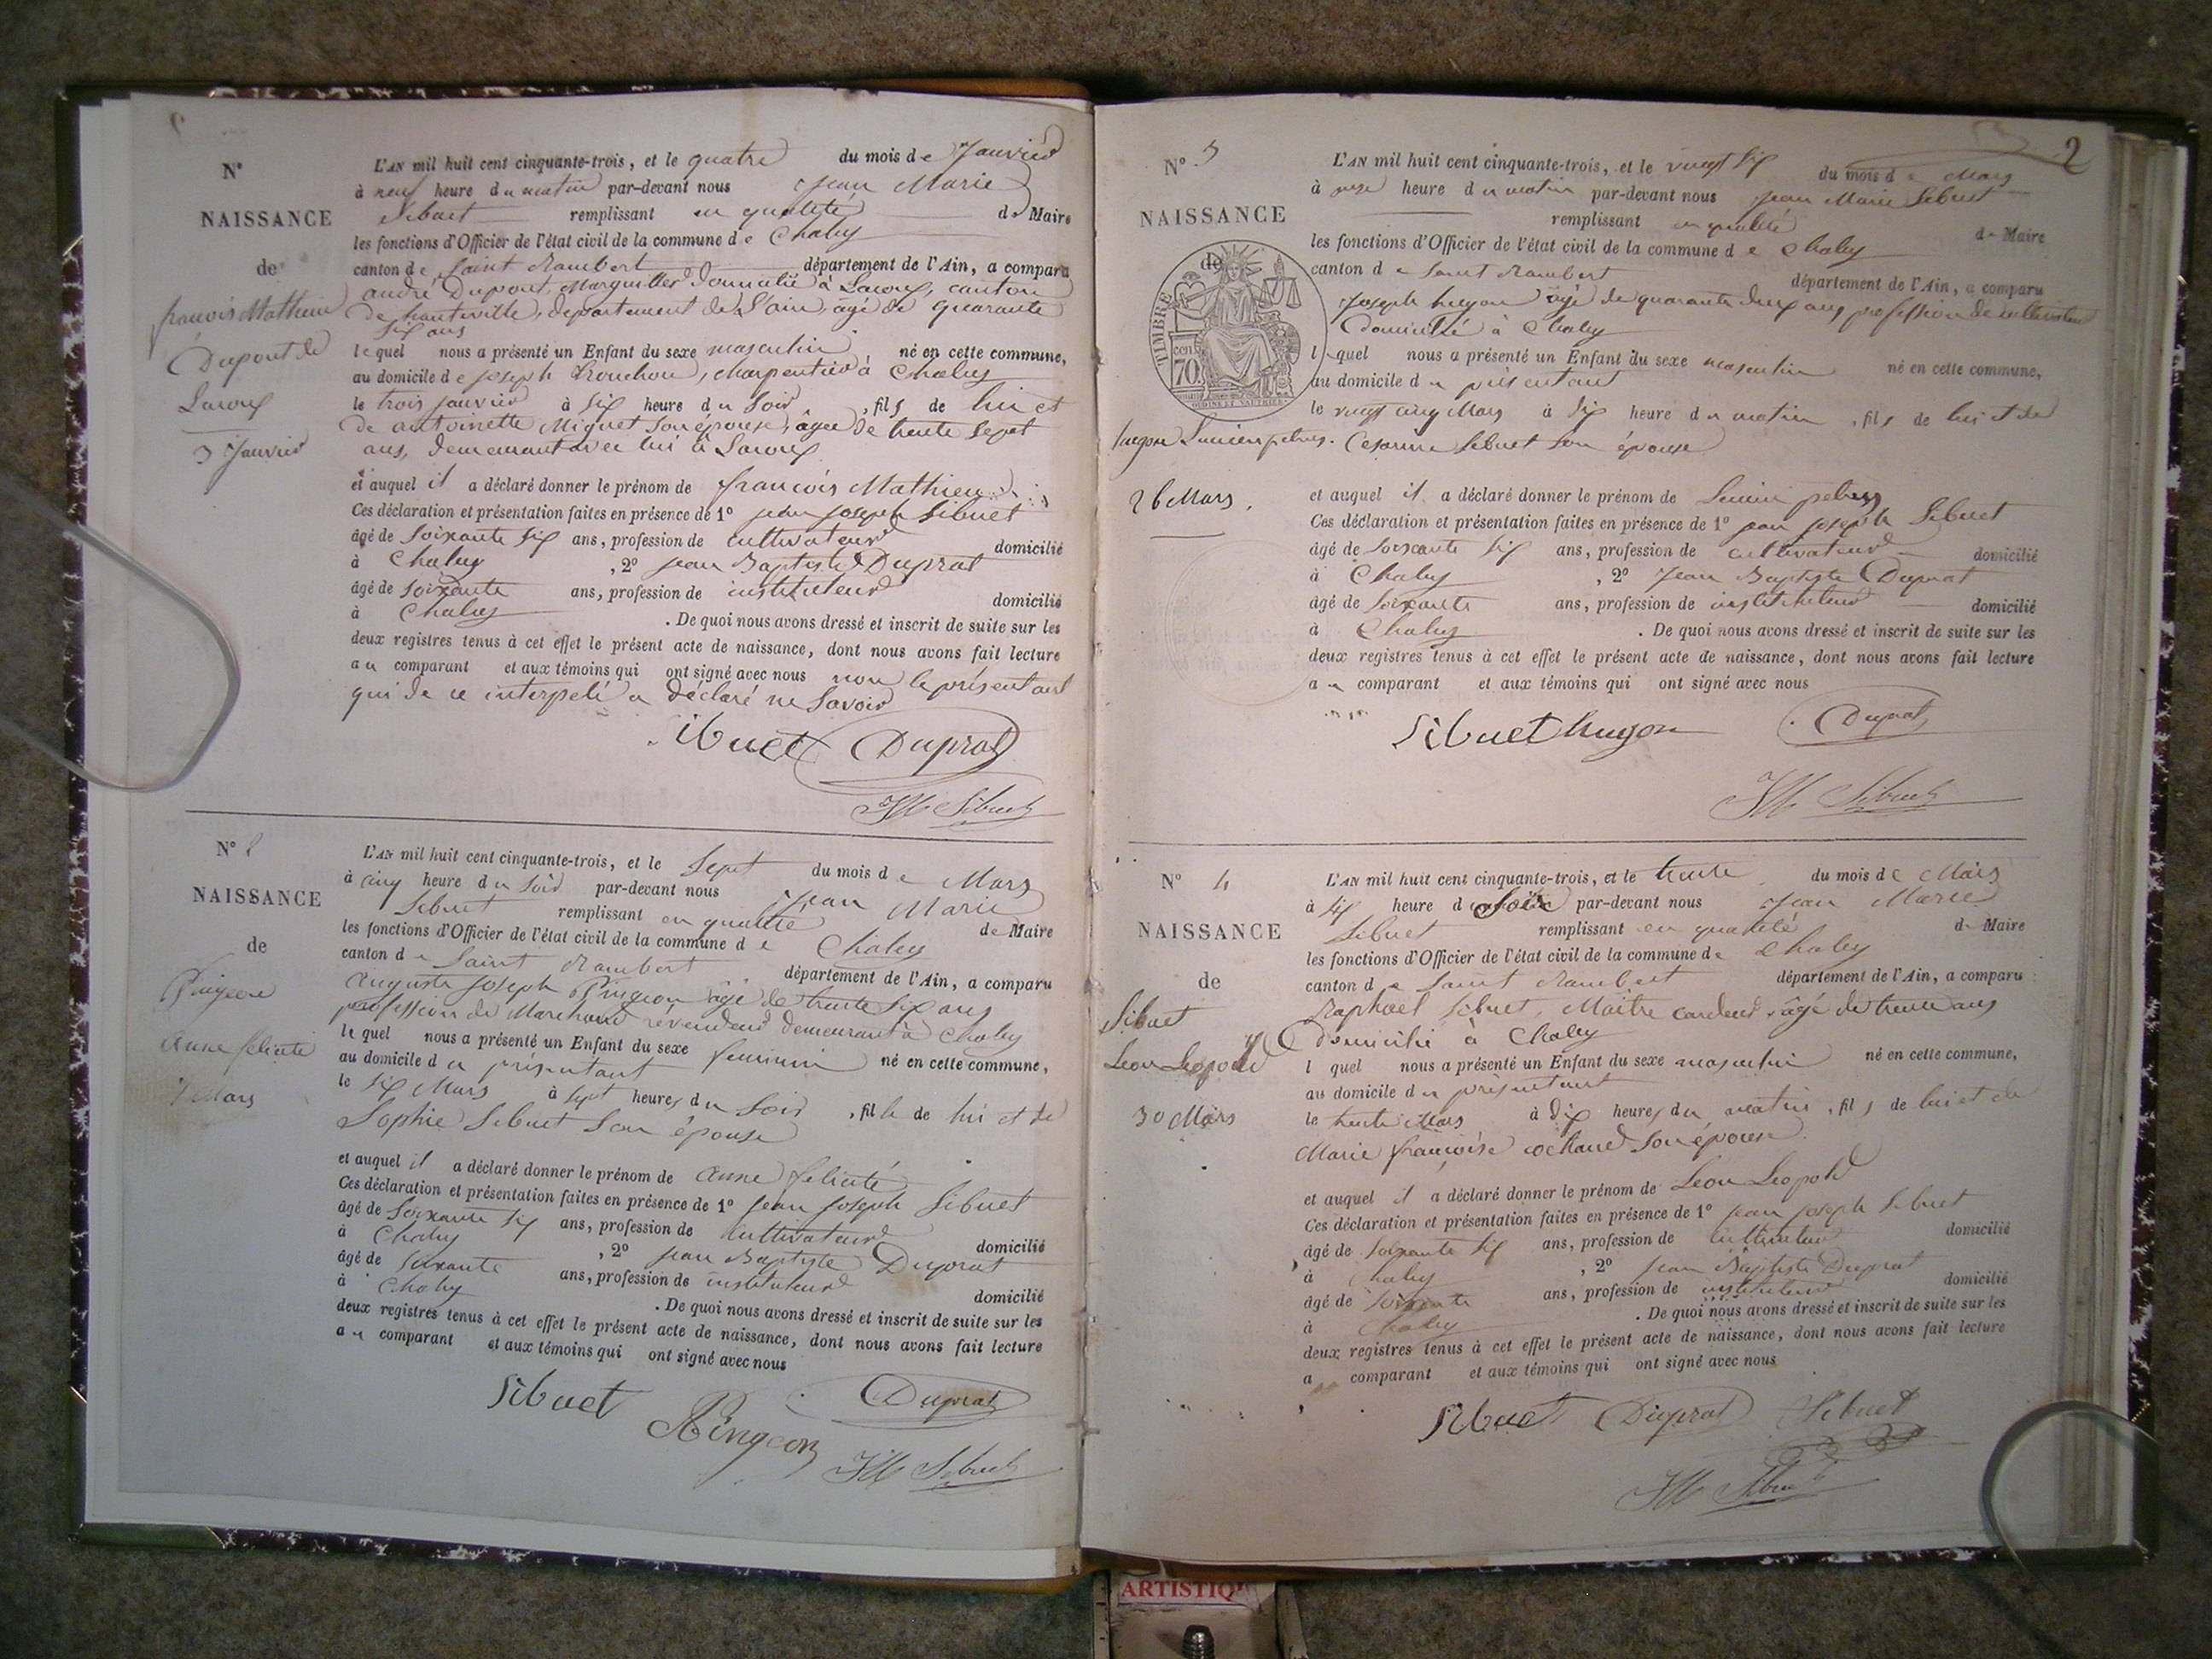 N°
NAISSANCE
de
francois Mathieu
Dupont de
Lacoux
3 Janvier
L'AN mil huit cent cinquante-trois, et le quatre du mois de Janvier
à neuf heure du matin par-devant nous Jean Marie
Sibuet remplissant en qualité de Maire
les fonctions d'Officier de l'état civil de la commune de Chaley
canton de Saint Rambert département de l'Ain, a comparu
andré Dupont, Marguiller Domicilié à Lacoux, canton
de hauteville, departement de L'ain, âgé de quarante
six ans
lequel nous a présenté un Enfant du sexe masculin né en cette commune,
au domicile de joseph Bouchon, charpentier à Chaley
le trois janvier à six heure du Soir, fils de lui et
de antoinette Miguet Son épouse, âgée de trente Sept
ans, demeurant avec lui à Lacoux
et auquel il a déclaré donner le prénom de francois Mathieu
Ces déclaration et présentation faites en présence de 1° jean joseph Sibuet
âgé de Soixante Six ans, profession de cultivateur domicilié
à Chaley, 2° jean Baptiste Duprat
âgé de Soixante ans, profession de instituteur domicilié
à Chaley. De quoi nous avons dressé et inscrit de suite sur les
deux registres tenus à cet effet le présent acte de naissance, dont nous avons fait lecture
au comparant et aux témoins qui ont signé avec nous non le présentant
qui de ce interpelé a déclaré ne Savoir
Sibuet Duprat
JM Sibuet
N° 2
NAISSANCE
de
Pingeon
Anne félicité
7 Mars
L'AN mil huit cent cinquante-trois, et le Sept du mois de Mars
à cinq heure du Soir par-devant nous Jean Marie
Sibuet remplissant en qualité de Maire
les fonctions d'Officier de l'état civil de la commune de Chaley
canton de Saint Rambert département de l'Ain, a comparu
Auguste Joseph Pingeon âgé de trente Six ans
profession de Marchand révendeur demeurant à Chaley
lequel nous a présenté un Enfant du sexe feminin né en cette commune,
au domicile du présentant
le Six Mars à Sept heures du Soir, fille de lui et de
Sophie Sibuet Son épouse
et auquel il a déclaré donner le prénom de Anne félicité
Ces déclaration et présentation faites en présence de 1° Jean Joseph Sibuet
âgé de Soixante Six ans, profession de Cultivateur domicilié
à Chaley, 2° jean Baptiste Duprat
âgé de Soixante ans, profession de instituteur domicilié
à Chaley. De quoi nous avons dressé et inscrit de suite sur les
deux registres tenus à cet effet le présent acte de naissance, dont nous avons fait lecture
au comparant et aux témoins qui ont signé avec nous
Sibuet Pingeon Duprat
JM Sibuet
2
N° 3
NAISSANCE
de
TIMBRE
70
hugon Lucien
26 Mars.
L'AN mil huit cent cinquante-trois, et le vingt Six du mois de Mars
à onze heure du matin par-devant nous Jean Marie Sibuet
remplissant en qualité de Maire
les fonctions d'Officier de l'état civil de la commune de Chaley
canton de Saint Rambert département de l'Ain, a comparu
Joseph hugon âgé de quarante deux ans profession de cultivateur
Domicilié à Chaley
lequel nous a présenté un Enfant du sexe masculin né en cette commune,
au domicile du présentant
le vingt cinq Mars à Six heure du matin, fils de lui et de
Cesarine Sibuet Son épouse
et auquel il a déclaré donner le prénom de Lucien
Ces déclaration et présentation faites en présence de 1° jean joseph Sibuet
âgé de Soixante Six ans, profession de cultivateur domicilié
à Chaley, 2° Jean Baptiste Duprat
âgé de Soixante ans, profession de instituteur domicilié
à Chaley. De quoi nous avons dressé et inscrit de suite sur les
deux registres tenus à cet effet le présent acte de naissance, dont nous avons fait lecture
au comparant et aux témoins qui ont signé avec nous
Sibuet hugon Duprat
JM Sibuet
N° 4
NAISSANCE
de
Sibuet
Leon Leopold
30 Mars
L'AN mil huit cent cinquante-trois, et le trente du mois de Mars
à Six heure du Soir par-devant nous Jean Marie
Sibuet remplissant en qualité de Maire
les fonctions d'Officier de l'état civil de la commune de Chaley
canton de Saint Rambert département de l'Ain, a comparu
Raphael Sibuet, Maitre cardeur, âgé de trente ans
Domicilié à Chaley
lquel nous a présenté un Enfant du sexe masculin né en cette commune,
au domicile du présentant
le trente Mars à dix heures du matin, fils de lui et de
Marie françoise Son épouse
et auquel il a déclaré donner le prénom de Leon Leopold
Ces déclaration et présentation faites en présence de 1° jean joseph Sibuet
âgé de Soixante Six ans, profession de Cultivateur domicilié
à Chaley, 2° Jean Baptiste Duprat
âgé de Soixante ans, profession de instituteur domicilié
à Chaley. De quoi nous avons dressé et inscrit de suite sur les
deux registres tenus à cet effet le présent acte de naissance, dont nous avons fait lecture
a comparant et aux témoins qui ont signé avec nous
Sibuet Duprat Sibuet
JM Sibuet
ARTISTIQU